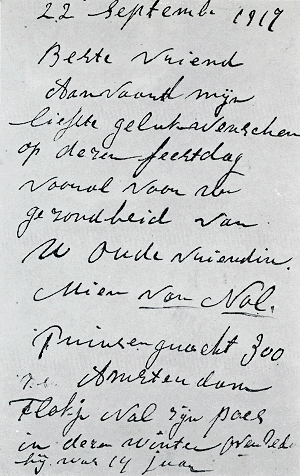 22 September 1917
Beste Vriend
Aanvaard mijn
liefste gelukwenschen
op dezen feestdag
vooral voor uw
gezondheid van
U Oude Vriendin.
Mien van Nol.
Prinsengracht 300
Amsterdam
Flokje Nol zijn poes
in dezen winter
hij was 14 jaar